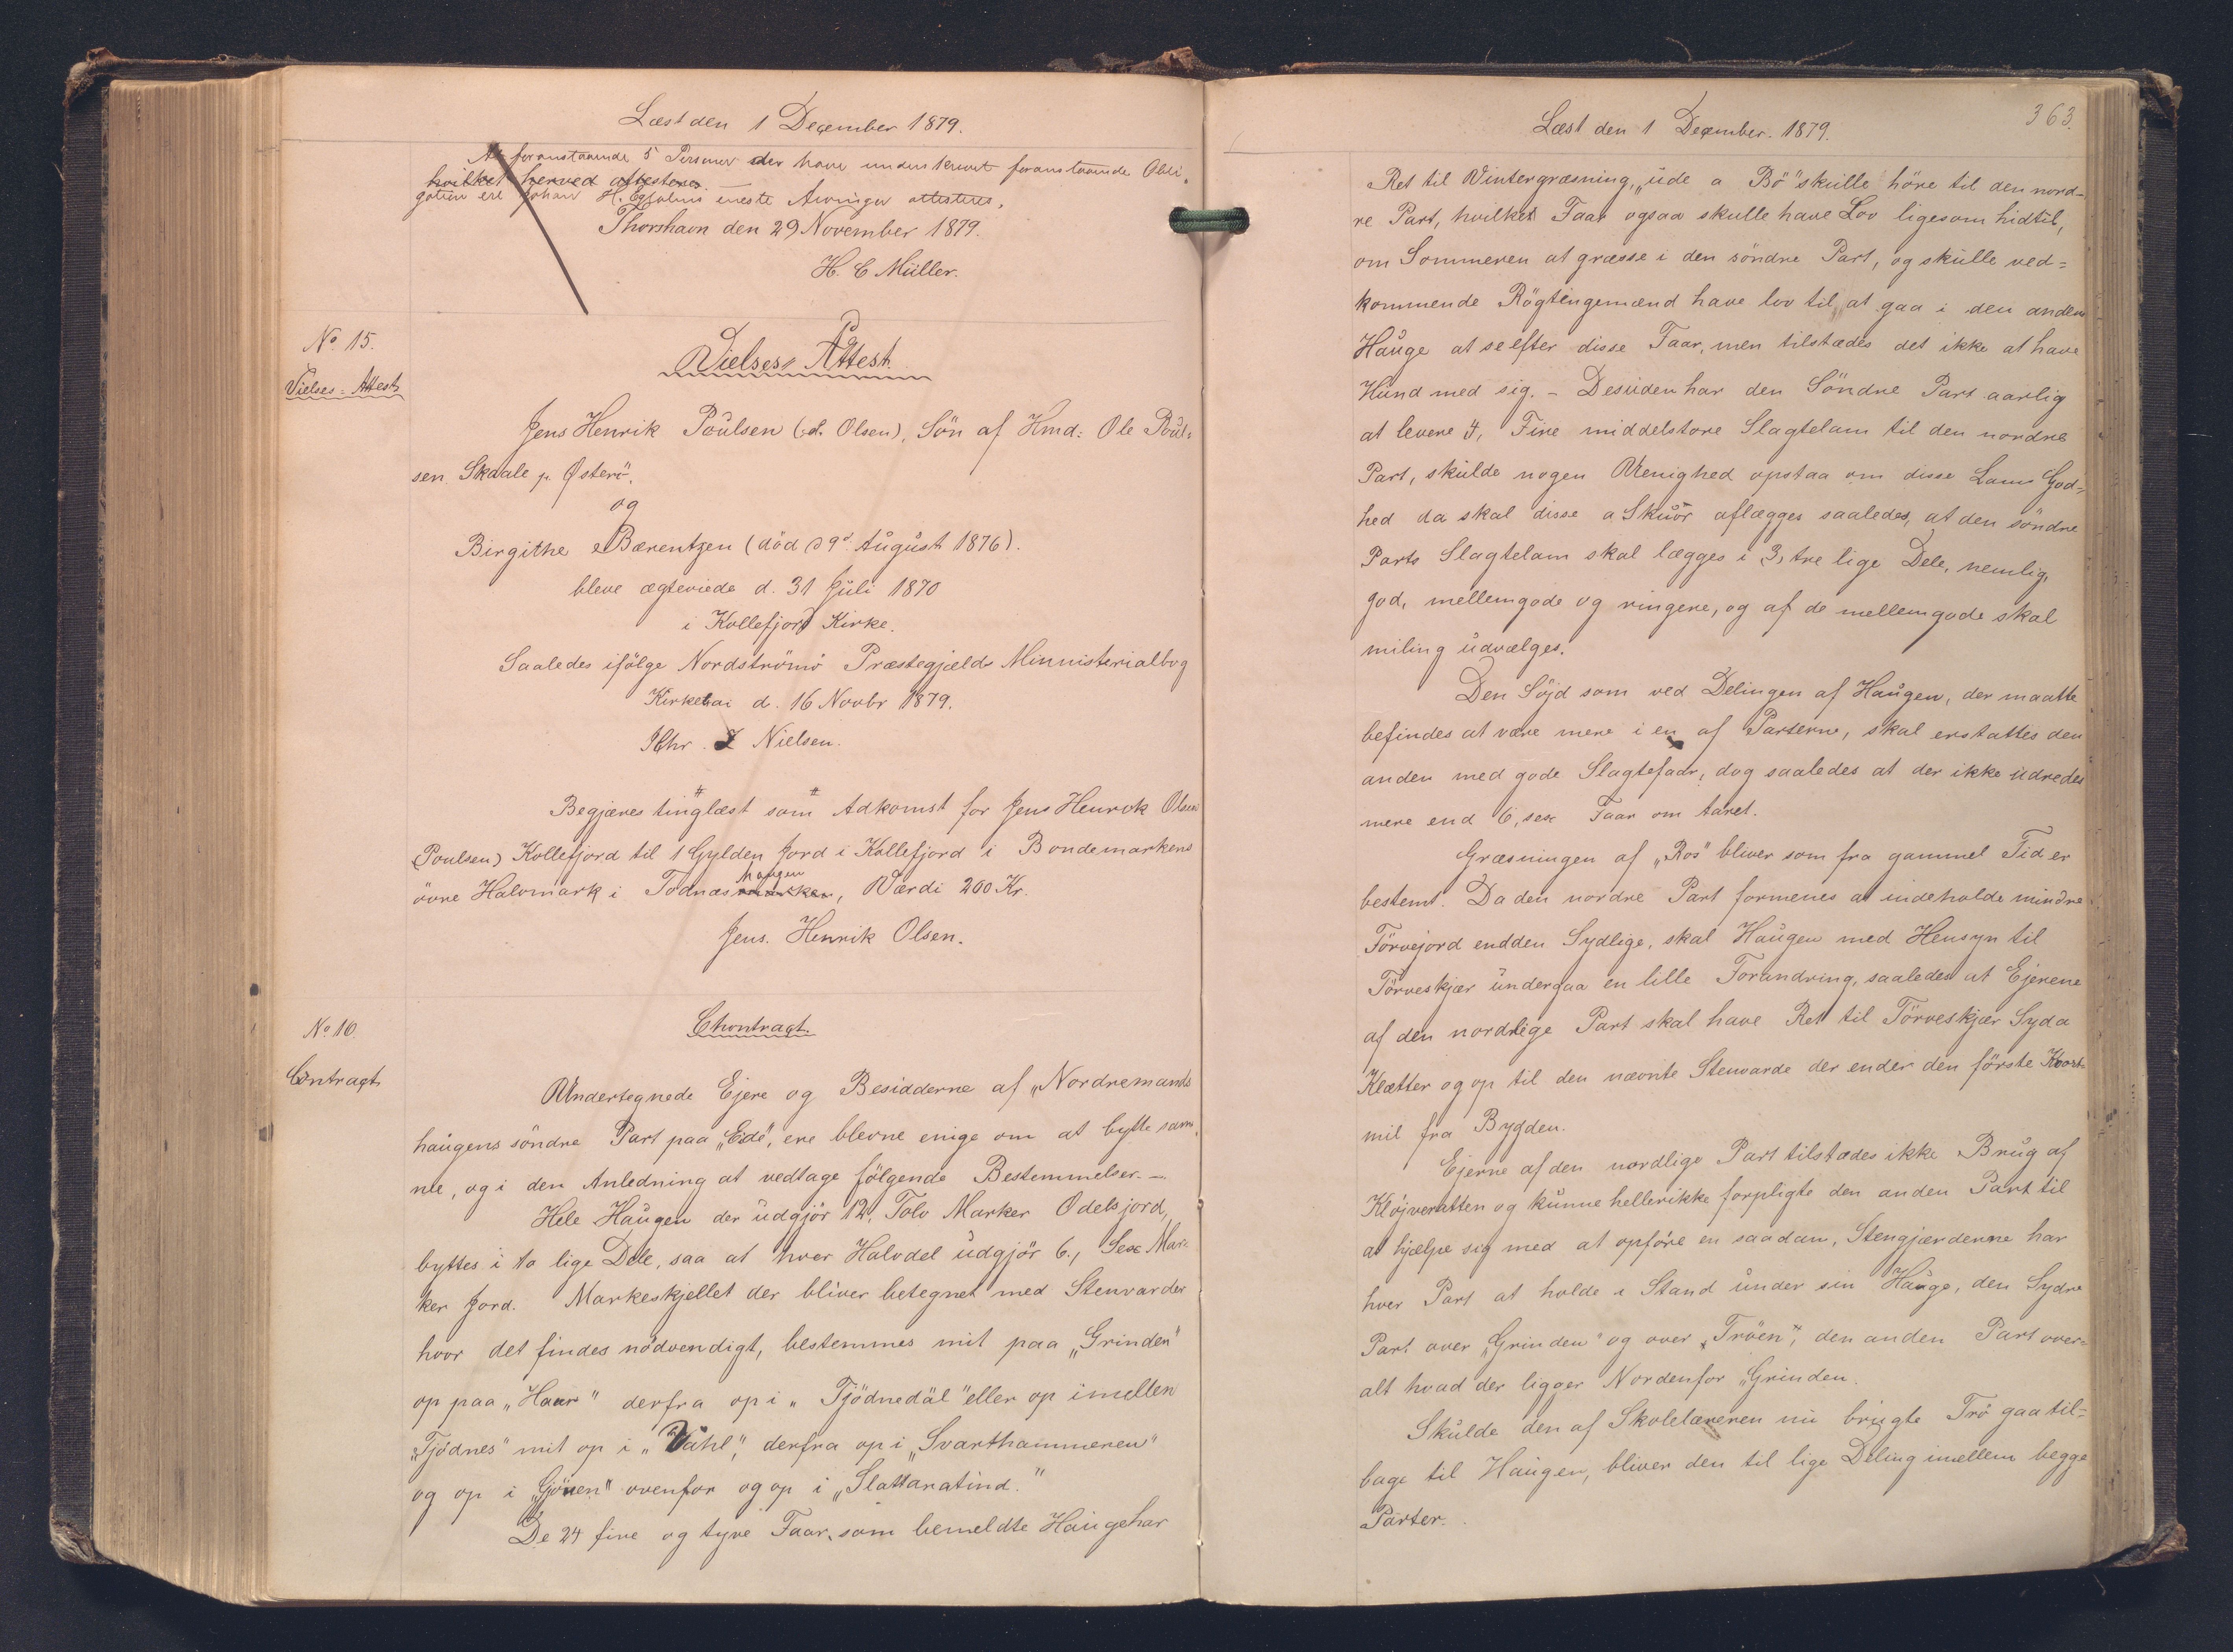 Læst den 1 December 1879.
At foranstaaende 5 Personer der have underskrevet foranstaaende Obli-
hvilket herved attesteres.
gation ere Johan H. eneste Arvinger attesteres.
Thorshavn den 29 November 1879.
H. C Müller.
No 15.
Vielses=Attest
Vielses Attest.
Jens Henrik Poulsen (el. Olsen), Sön af Hmd: Ole Poul-
sen Skaale p. Østerö.
og
Birgithe Bærentzen (död d 9d August 1876).
bleve ægteviede d. 31 Juli 1870
i Kollefjord Kirke.
Saaledes ifölge Nordströmö Præstegjælds Minnisterialbog
d. 16 Novbr 1879.
Chr. Nielsen.
Begjæres tinglæst som Adkomst for Jens Henrik Olsen
(Poulsen) Kollefjord til 1 Gylden Jord i Kollefjord i Bondemarkens
haugen
övre Halvmark i Todnæsmarken, Værdi 200 Kr.
Jens. Henrik Olsen.
No 16.
Contragt
Chontragt.
Undertegnede Ejere og Besidderne af „Nordremands
haugens söndre Part paa „Eide", ere blevne enige om at bytte sam-
me, og i den Anledning at vedtage fölgende Bestemmelser. —
Hele Haugen der udgjör 12, Tolv Marker Odelsjord,
byttes i to lige Dele, saa at hver Halvdel udgjör 6., Sex Mar-
ker Jord. Markeskjellet der bliver betegnet med Stenvarder
hvor det findes nödvendigt, bestemmes mit paa „Grinden"
op paa „Haar" derfra op i „Tjödnedál" eller op imellen
„Tjödnes" mit op i „Vatil", derfra op i „Svarthammeren"
og op i „Gjöven" ovenfor og op i „Slattaratind."
De 24 fire og tyve Faar, som bemeldte Hauge har
363.
Læst den 1 December. 1879.
Ret til Vintergræsning, „ude a Bö" skulle höre til den nord-
re Part, hvilket Faar ogsaa skulle have Lov ligesom hidtil,
om Sommeren at græsse i den söndre Part, og skulle ved=
kommende Rögtingemænd have lov til at gaa i den anden
Hauge at se efter disse Faar, men tilstædes det ikke at have
Hund med sig. – Desuden har den Söndre Part aarlig
at levere 4, Fire middelstore Slagtelam til den nordre
Part, skulde nogen Uenighed opstaa om disse Lams God=
hed da skal disse a Skuör aflægges saaledes, at den söndre
Parts Slagtelam skal lægges i 3, tre lige Dele, nemlig,
god, mellemgode og ringere, og af de mellemgode skal
miling udvælges.
Den Söjd som ved Delingen af Haugen, der maatte
befindes at være mere i en af Parterne, skal erstattes den
anden med gode Slagtefaar, dog saaledes at der ikke udredes
mere end 6, sex Faar om Aaret.
Græsningen af „Ros" bliver som fra gammel Tid er
bestemt. Da den nordre Part formenes at indeholde mindre
Törvejord endden Sydlige, skal Haugen med Hensyn til
Törveskjær undergaa en lille Forandring, saaledes at Ejerene
af den nordlige Part skal have Ret til Törveskjær Syda
Klætter og op til den nævnte Stenvarde der ender den förste Kvart-
mil fra Bygden.
Ejerne af den nordlige Part tilstædes ikke Brug af
Klöjverætten og kunne hellerikke forpligte den anden Part til
at hjælpe sig med at opföre en saadan, Stengjærderne har
hver Part at holde i Stand under sin Hauge, den Sydre
Part over „Grinden" og over „Tröen", den anden Part over=
alt hvad der ligger Nordenfor „Grinden.
Skulde den af Skolelæreren nu brugte Trö gaa til=
bage til Haugen, bliver den til lige Deling imellem begge
Parter.